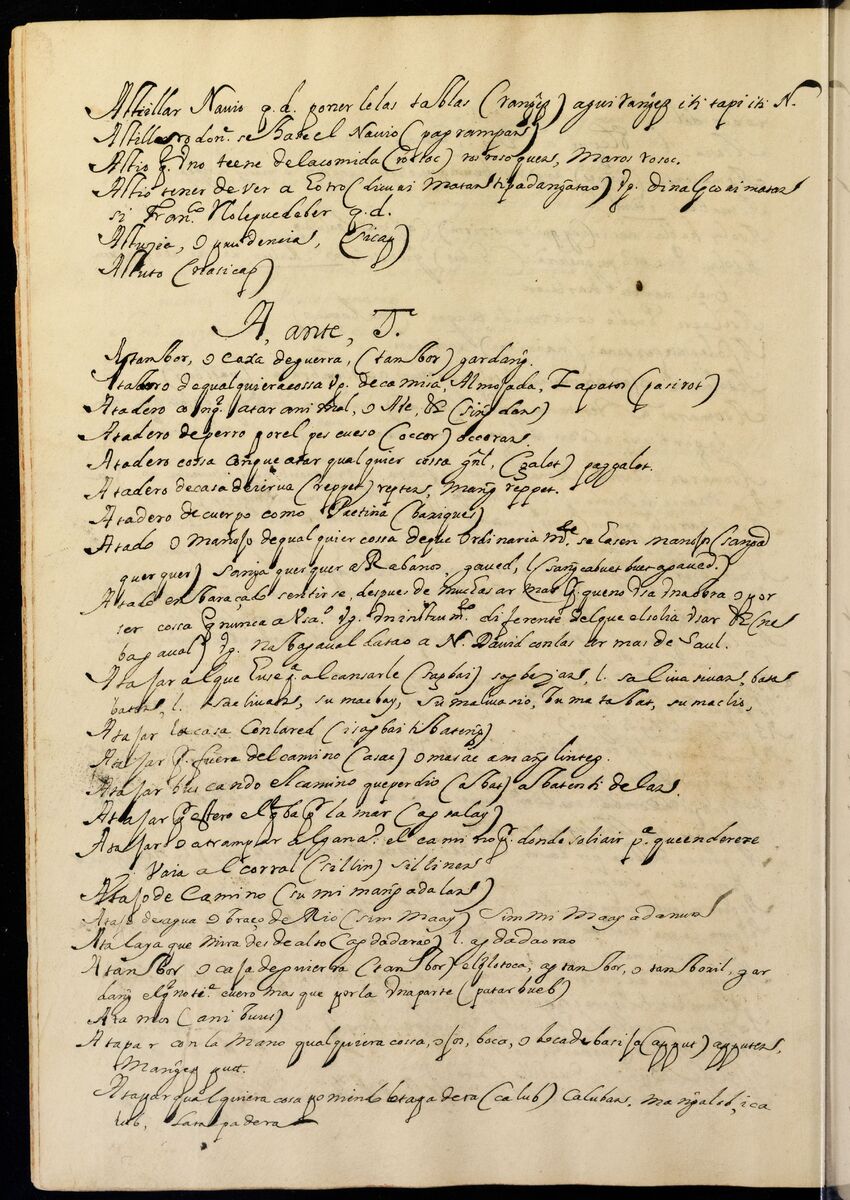 Astillar Navio q.d. ponerle las tablas (rang̃ep) agui rang̃ep iti tapi iti N.
Astillero don.e se Haze el Navio (pagrampan)
Astio q.e Vno teene de la comida (rossoc) rosroso quen, Maros rosoc.
Astio tener de ver a Eotro (dicu ai matan
si Fran.co Nolepuedeber q.d.
Astuzia, o prudencia, (sicap)
Astuto (nasicap)
A, ante, T.
Atambor, o Caxa de guerra, (tambor) gardang̃.
de qualquiera cossa Vg. de camisa, Almojada, Zapatos (pasirot)
Atadero con q.e atar animal, o Ate, &c (sing̃dan)
Atadero de perro por el pescueso (occor) occoran.
Atadero cossa con que atar qualquier cossa gñl, (galot) paggalot.
Atadero de casa de ierva (reppet) reppeten, mang̃reppet.
Atadero de cuerpo como Pretina (bariques)
Atado o Manojo de qualquier cossa de que Ordinaria m.te se hasen manojos (sang̃a
quer quer) sang̃a quer quer a Rabanos, paued, l (sang̃cabuet buet a paued.)
Atado en baraçado sentirse, despues de mucho
ser cossa q nunca a Vsa.o Vg. Vn instrum.to diferente del que el solia Vsar &c (na
bagaual) Vg. Nabagaual la tao a N. David con las armas de Saul.
Atajar al que huse p.a alcansarle (sapbai)
l. su maebay, sumalvasio, bumatbat, sumaclio,
Atajar la casa Con la red (isapbai ti bateng̃)
Atajar p.r fuera del camino (asae)
Atajar buscando el camino que perdio (asbat) asbaten ti delan.
Atajar p.r estero el q ba p.r la mar (agsalag)
Atajar o atrampar al gana.o el camino p.r donde solia ir p.a que enderese
Vaia al corral (sillin) sillinen
Atajo de Camino (su mi mang̃adalan)
Atajo de agua o braço de Rio (sim Maag) Simmi Maag a danum
Atalaya que mira desde alto (agdadarao) l. agdadaorao
Atambor o caja de guierra (tambor) el q lo toca, agtambor, o tamboril, gar
dang̃ el q no te.e cuero mas que por la Vna parte (patarbueb)
Ata mos (anibuus)
Atapar con la Mano qualquiera cossa, ojos, boca, o boca de basija (apput) apputen,
Mang̃ep put.
Atapar qualquiera cosa poniendole tapadera (calub) caluban. mang̃alub, ica
lub, la tapadera